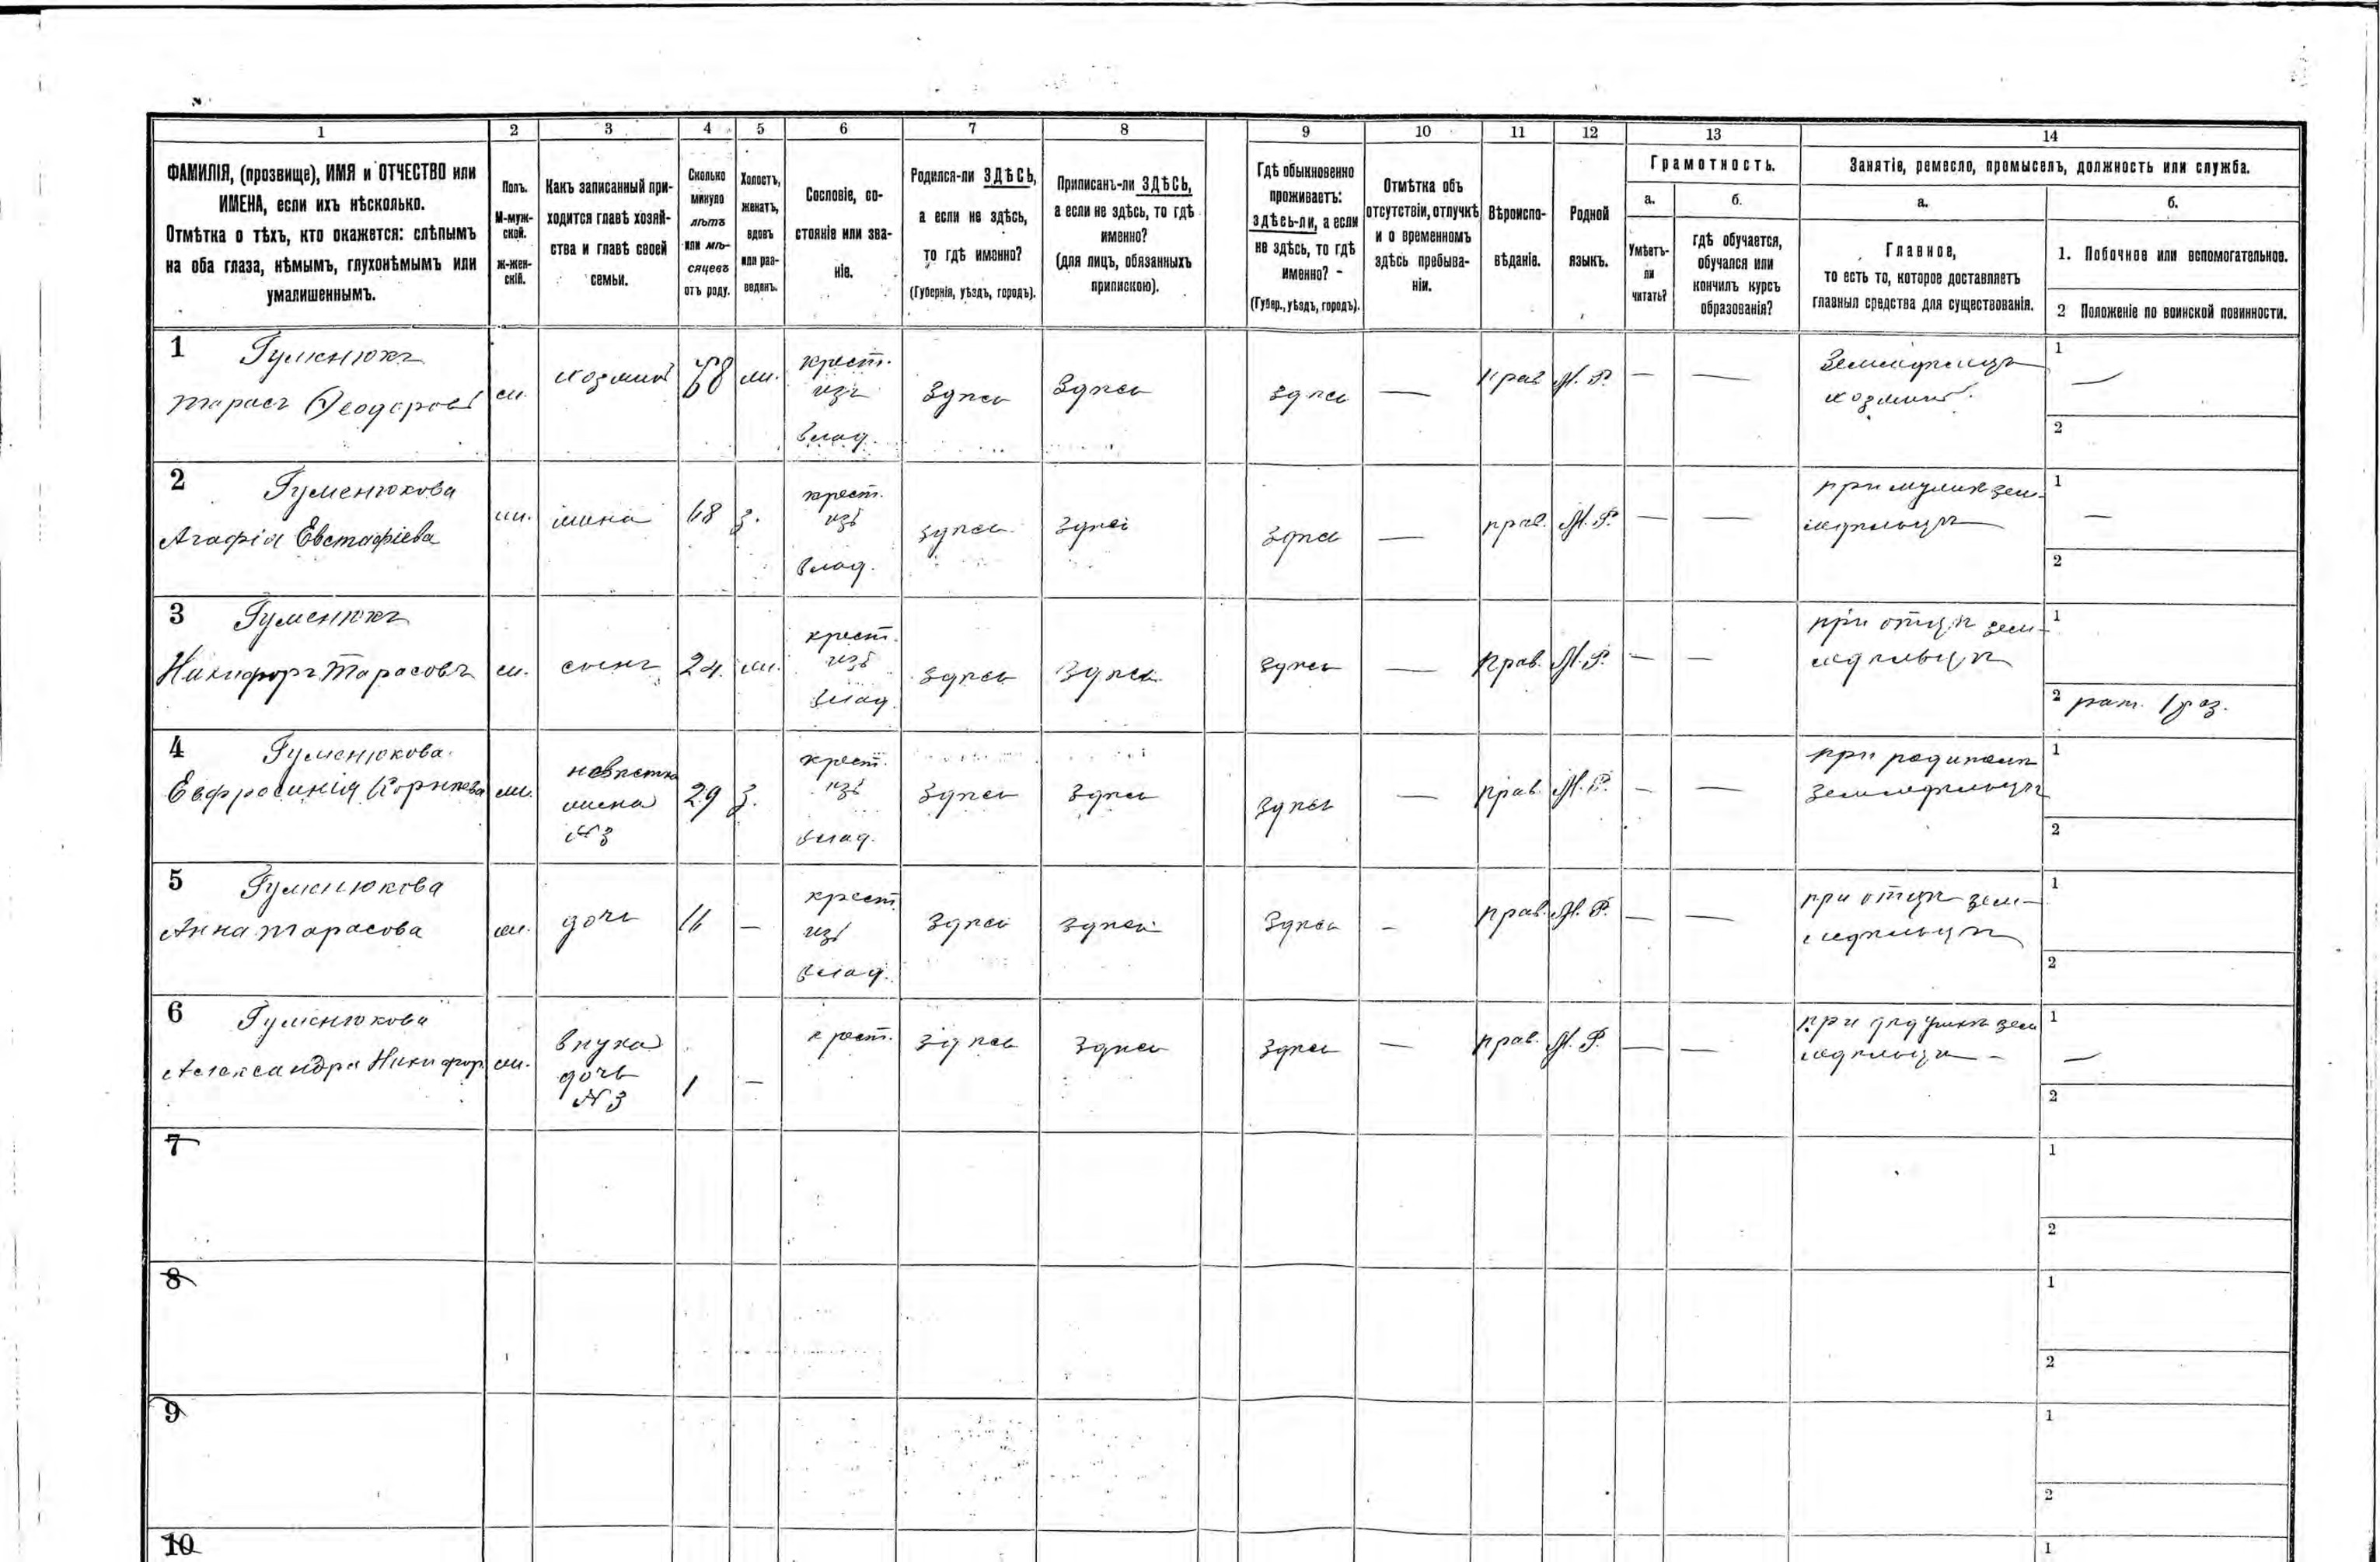 1 2 3 4 5 6 7 8 9 10 11 12 13 14
ФАМИЛІЯ, (прозвище), ИМЯ и ОТЧЕСТВО или
ИМЕНА, если ихъ нѣсколько.
Отмѣтка о тѣхъ, кто окажется: слѣпымъ
на оба глаза, нѣмымъ, глухонѣмымъ или
умалишеннымъ.
Полъ.
М-муж-
ской.
ж-жен-
скій.
Какъ записанный при-
ходится главѣ хозяй-
ства и главѣ своей
семьи.
Сколько
минуло
лѣтъ
или мѣ-
сяцевъ
отъ роду.
Холостъ,
женатъ,
вдовъ
или раз-
веденъ.
Сословіе, со-
стояніе или зва-
ніе.
Родился-ли ЗДѢСЬ,
а если не здѣсь,
то гдѣ именно?
(Губернія, уѣздъ, городъ).
Приписанъ-ли ЗДѢСЬ,
а если не здѣсь, то гдѣ
именно?
(для лицъ, обязанныхъ
припискою).
Гдѣ обыкновенно
проживаетъ:
здѣсь-ли, а если
не здѣсь, то гдѣ
именно?
(Губер., уѣздъ, городъ).
Отмѣтка объ
отсутствіи, отлучкѣ
и о временномъ
здѣсь пребыва-
ніи.
Вѣроиспо-
вѣданіе.
Родной
языкъ.
Грамотность.
а.
Умѣетъ-
ли
читать?
б.
гдѣ обучается,
обучался или
кончилъ курсъ
образованія?
Занятіе, ремесло, промыселъ, должность или служба.
а.
Главное,
то есть то, которое доставляетъ
главныя средства для существованія.
б.
1. Побочное или вспомогательное.
2 Положеніе по воинской повинности.
1 Гуменюкъ
Тарасъ Ѳеодоровъ
м.
хозяинъ
ж.
крест.
изъ
влад.
здѣсь
здѣсь
здѣсь
—
прав
М. Р.
—
—
Земледѣлецъ
хозяинъ
1 —
2
2 Гуменюкова
Агафія Евстафіева
ж.
жена
48
з.
крест.
изъ
влад.
здѣсь
здѣсь
здѣсь
—
прав.
М. Р.
—
—
при мужѣ зем-
ледѣльцѣ
1 —
2
3 Гуменюкъ
Никифоръ Тарасовъ
м.
сынъ
24.
ж.
крест.
изъ
влад.
здѣсь
здѣсь
здѣсь
—
прав.
М. Р.
—
—
при отцѣ зем-
ледѣльцѣ
1
2 рат. 1 раз.
4 Гуменюкова
Евфросинія Корнѣева
ж.
невѣстка
жена
N 3
29
з.
крест.
изъ
влад.
здѣсь
здѣсь
здѣсь
—
прав.
М. Р.
—
—
при
земледѣльцѣ
1
2
5 Гуменюкова
Анна Тарасова
ж.
дочь
—
крест.
изъ
влад.
здѣсь
здѣсь
здѣсь
—
прав.
М. Р.
—
—
при отцѣ зем-
ледѣльцѣ
1
2
6 Гуменюкова
Александра Никифор
ж.
внука
дочь
N 3
1
—
крест.
здѣсь
здѣсь
здѣсь
—
прав.
М. Р.
—
—
при дѣдушкѣ зем
ледѣльцѣ —
1 —
2
7
1
2
8
1
2
9
1
2
10
1